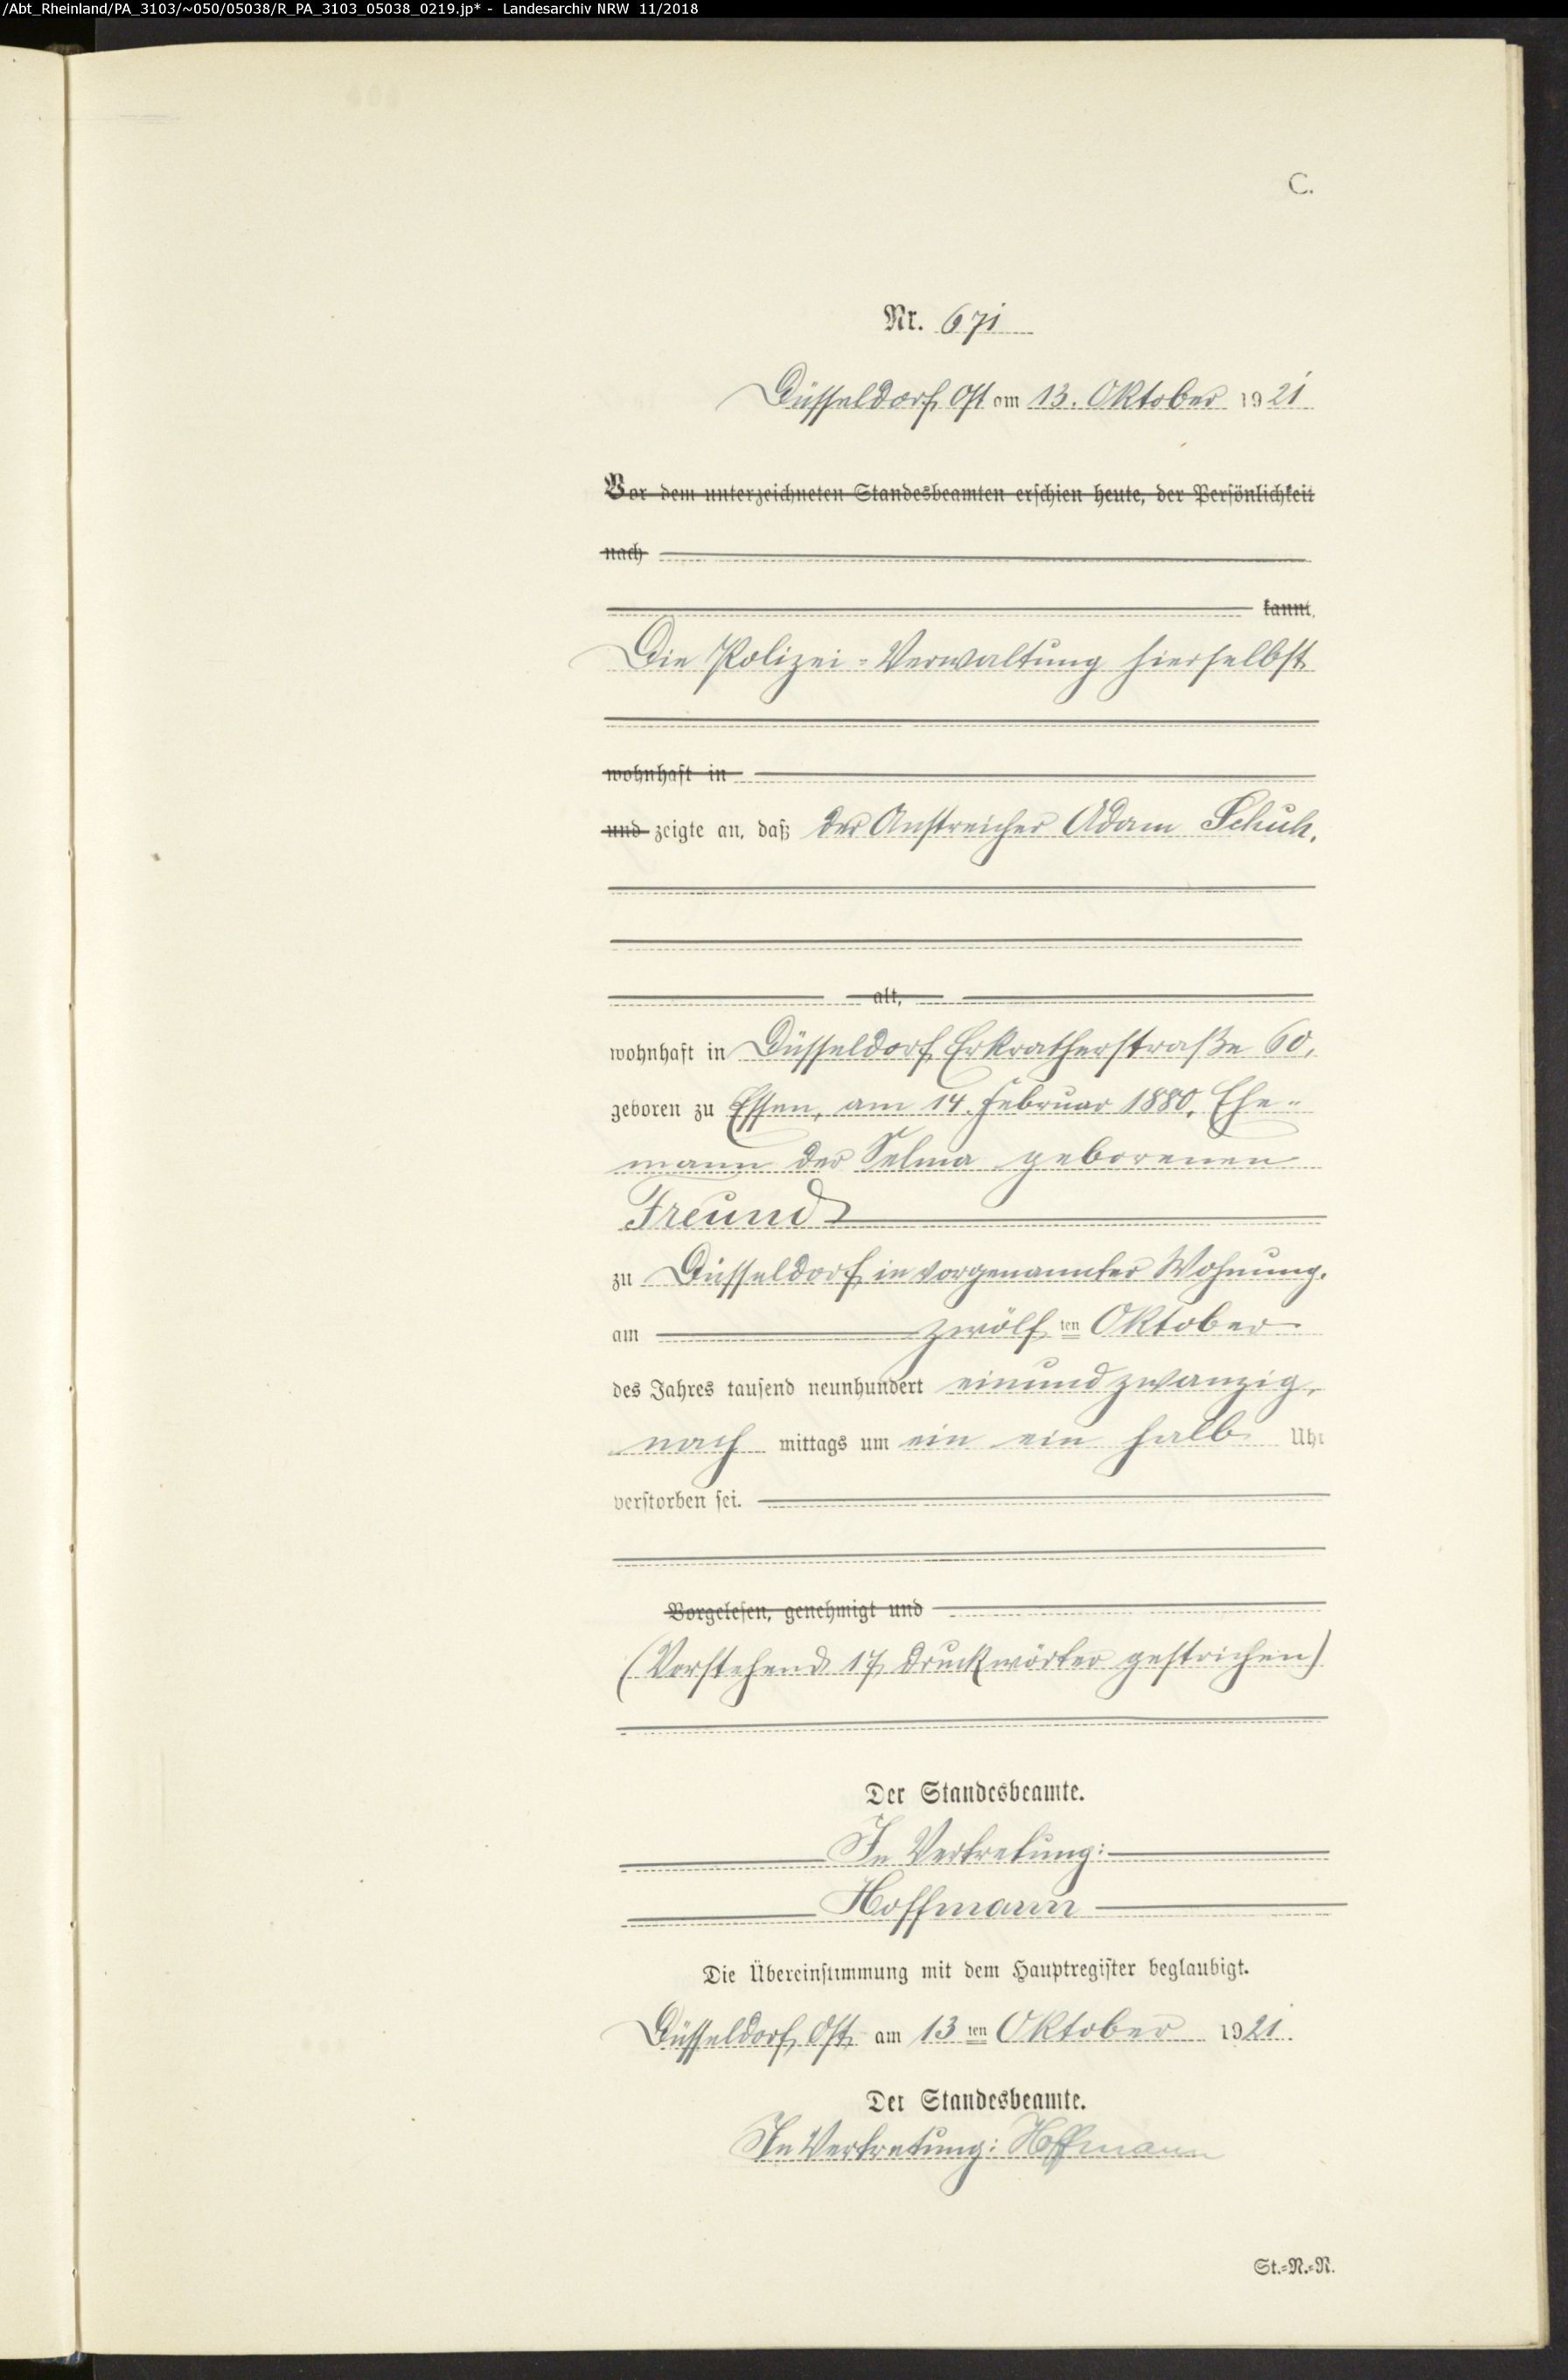 /Abt_Rheinland/PA_3103/~050/05038/R_PA_3103_05038_0219.jp* - Landesarchiv NRW 11/2018
C.
Nr. 671
Düsseldorf Ost am 13. Oktober 1921
Vor dem unterzeichneten Standesbeamten erschien heute, der Persönlichkeit
nach
kannt,
Die Polizei-Verwaltung hierselbst
wohnhaft in
und zeigte an, daß der Anstreicher Adam Schuh,
alt,
wohnhaft in Düsseldorf, Erkratherstraße 60,
geboren zu Essen, am 14. Februar 1880, Ehe-
mann der Selma geborenen
Freund
zu Düsseldorf, in vorgenannter Wohnung,
am zwölften Oktober
des Jahres tausend neunhundert einundzwanzig,
nach mittags um ein ein halb Uhr
verstorben sei.
Vorgelesen, genehmigt und
(Vorstehend 17 Druckwörter gestrichen)
Der Standesbeamte.
In Vertretung:
Hoffmann
Die Übereinstimmung mit dem Hauptregister beglaubigt.
Düsseldorf, Ost, am 13ten Oktober 1921.
Der Standesbeamte.
In Vertretung: Hoffmann
St.-N.-R.